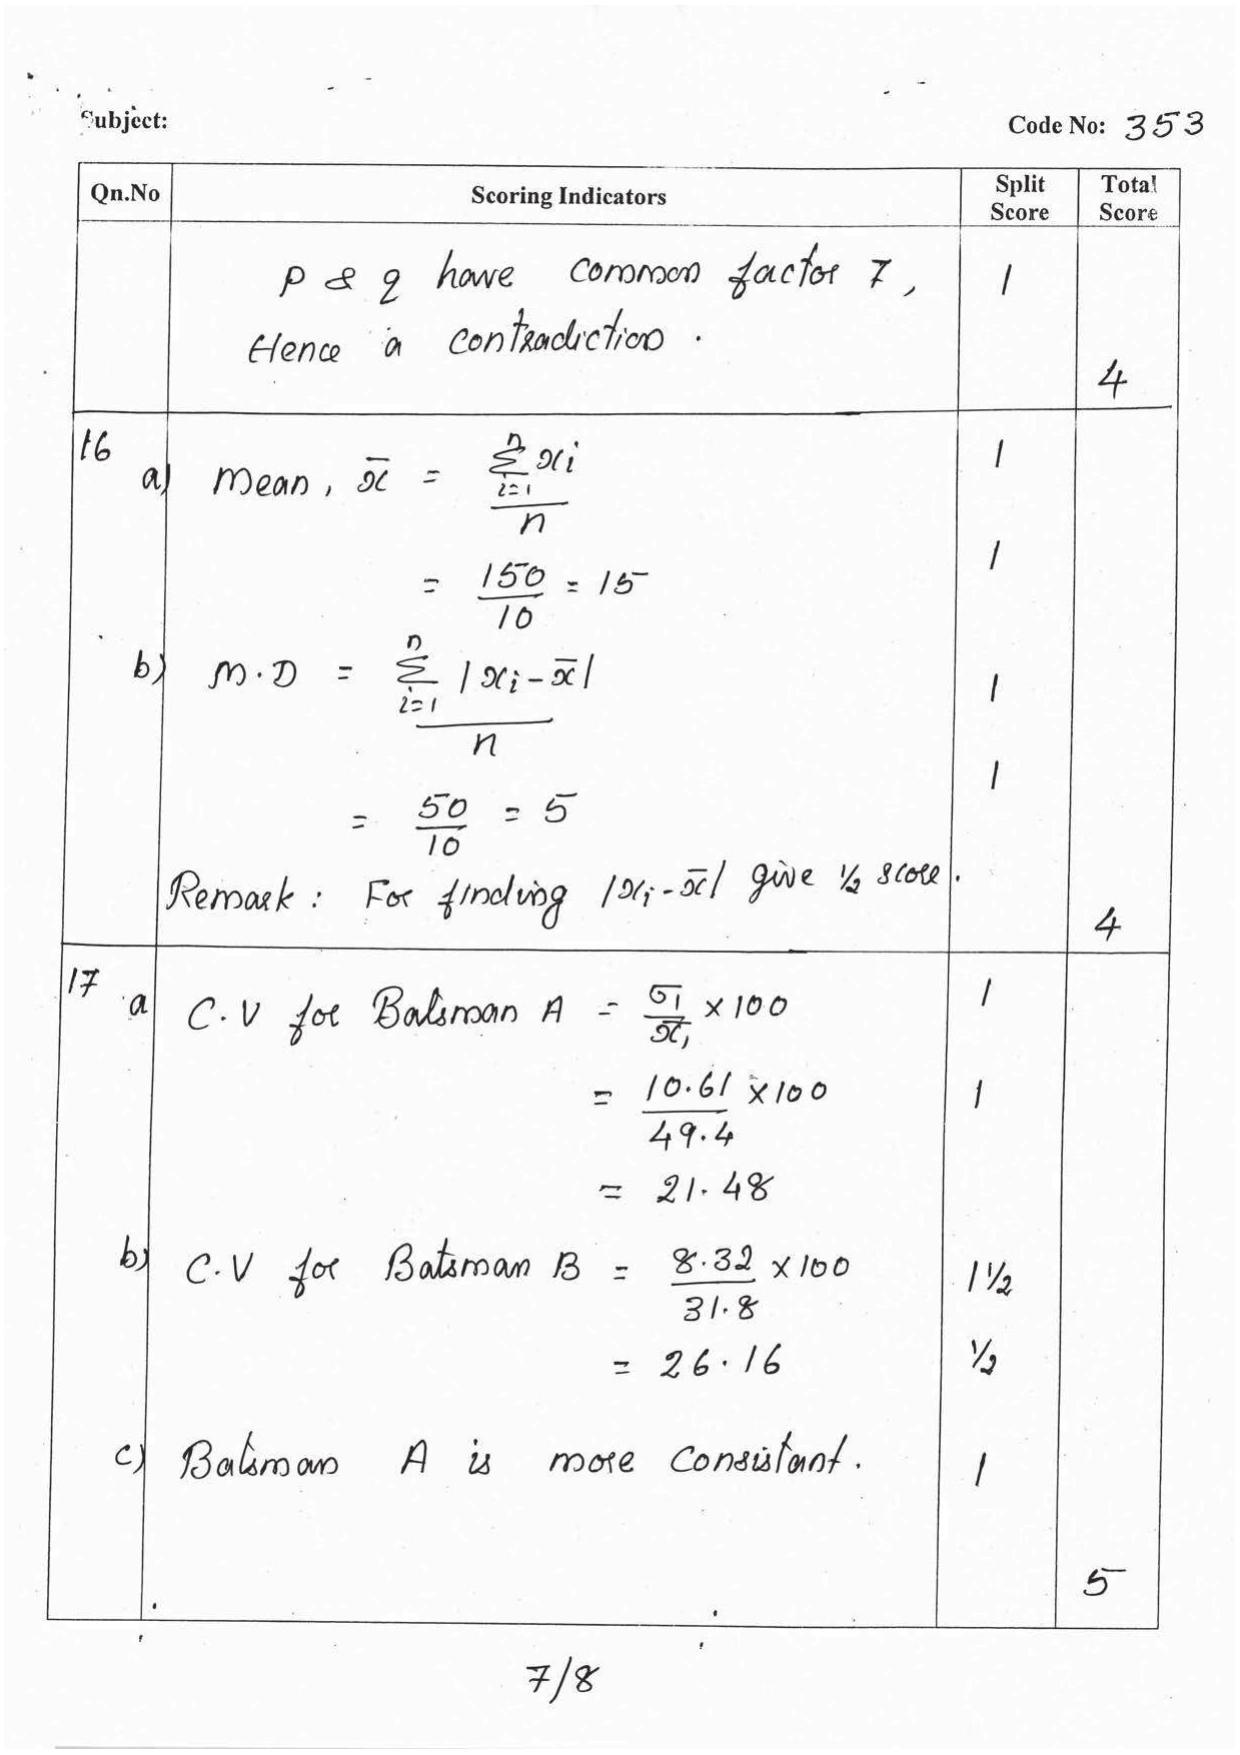 Subject: Code No: 353
Qn.No Scoring Indicators Split Score Total Score
p & q have common factor 7, 1
Hence a contradiction.
4
16 a) Mean, x̄ = Σ_{i=1}^{n} xi / n 1
= 150/10 = 15 1
b) M.D = Σ_{i=1}^{n} |xi - x̄| / n 1
= 50/10 = 5 1
Remark : For finding |xi - x̄| give ½ score.
4
17 a C.V for Batsman A = σ1/x̄1 × 100 1
= 10.61/49.4 × 100 1
= 21.48
b) C.V for Batsman B = 8.32/31.8 × 100 1½
= 26.16 ½
c) Batsman A is more Consistant. 1
5
7/8